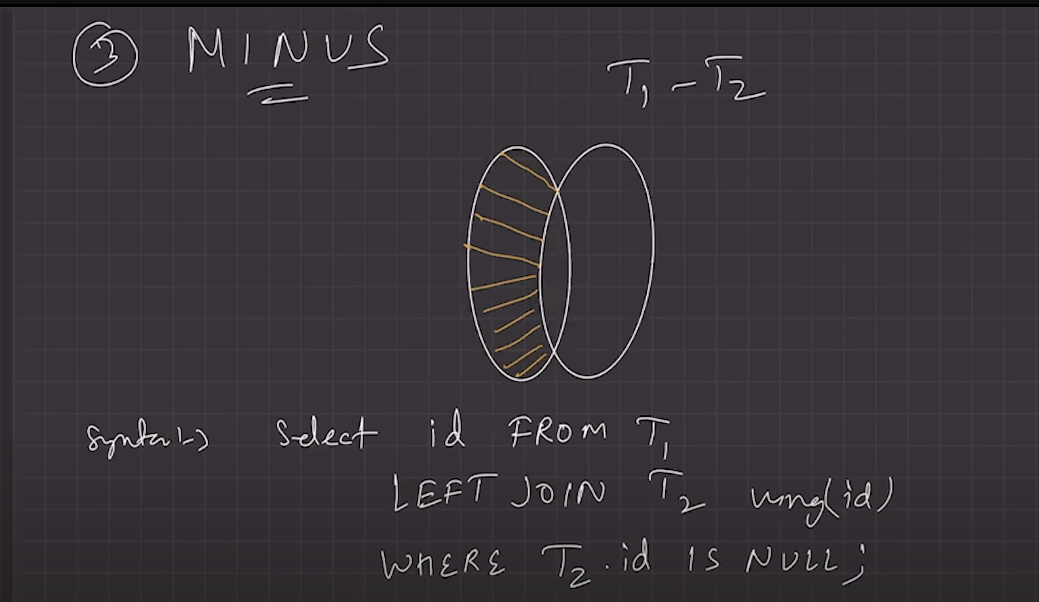 3 MINUS
T1 - T2
Syntax:-> Select id FROM T1
LEFT JOIN T2 using(id)
WHERE T2.id IS NULL;